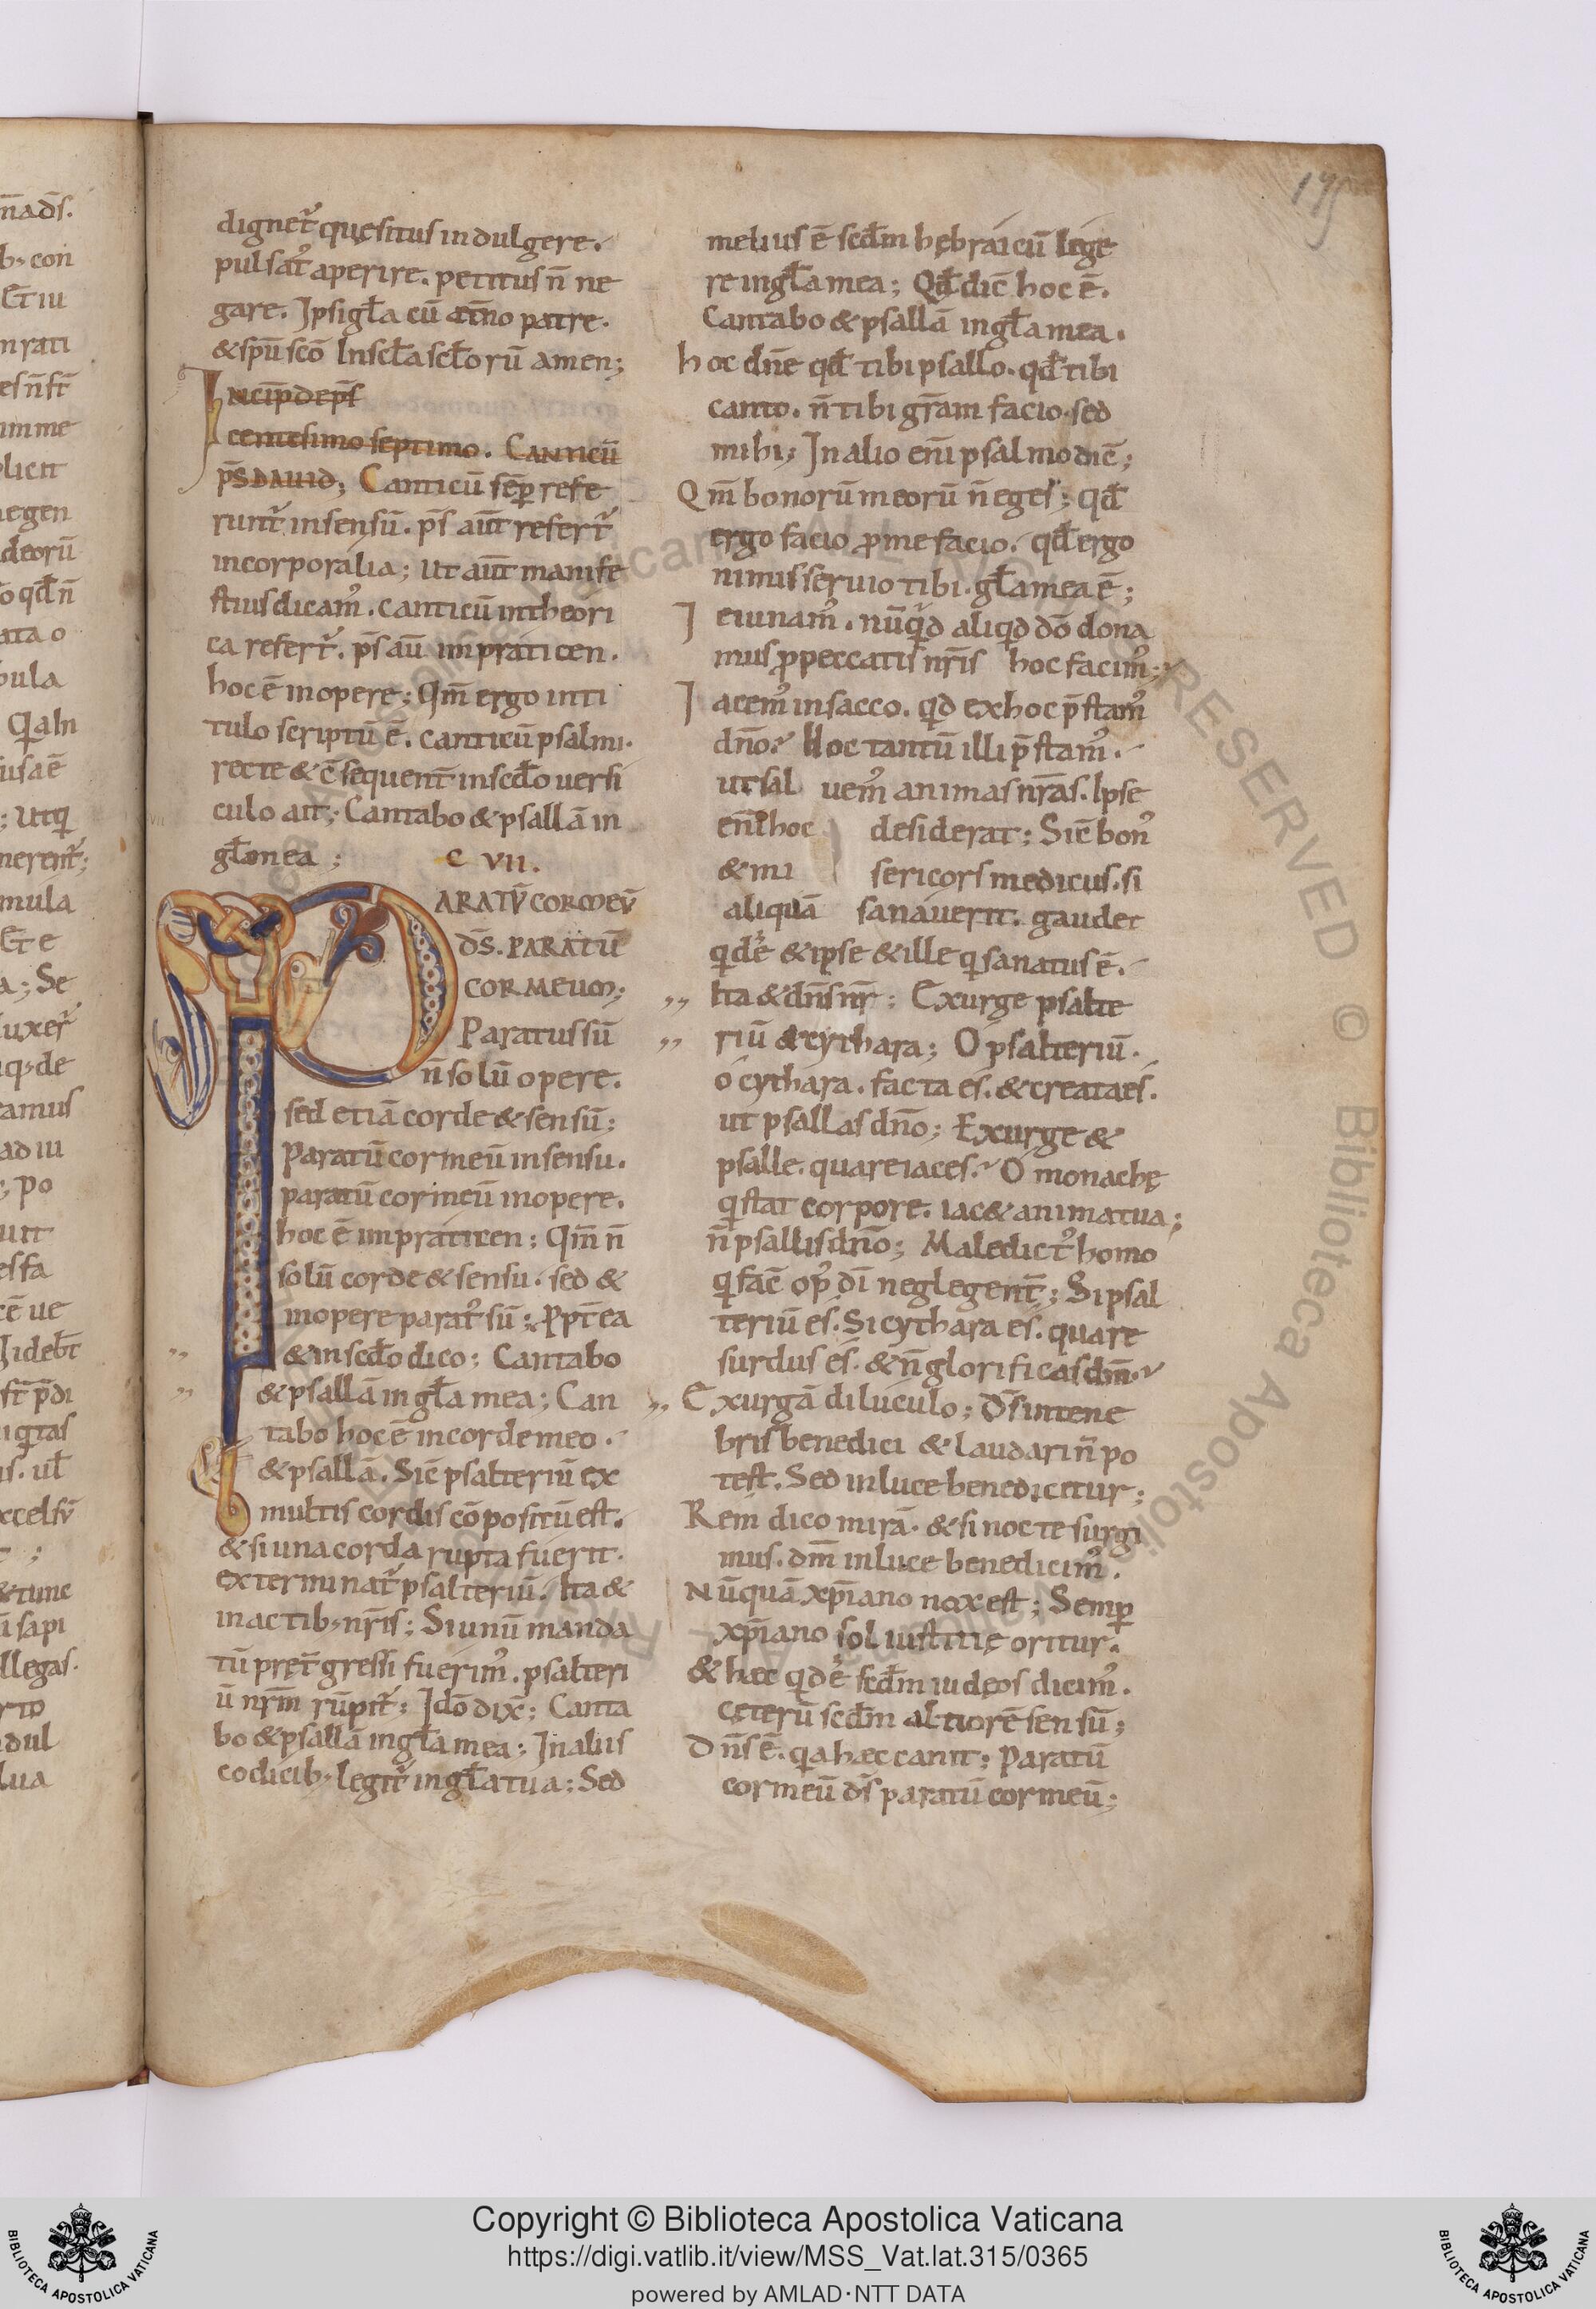 dignet᷑ quęsitus indulgere.
pulsat᷑ aperire. petitus n̄ ne
gare. Ipsi gl̄a cū ęt̄no patre.
& sp̄u sc̄o In sc̄la sc̄lorū amen;
Incip̄ de ps̄
centesimo septimo. CANTICŪ
ps̄ DAUID; Canticū sēp refe
runt᷑ in sensū. ps̄ aūt refert᷑
incorporalia; Ut aūt manife
stius dicam᷒. canticū in theori
ca refert᷑. ps̄ aū in praticen.
hoc ē in opere; Qm̄ ergo in ti
tulo scriptū ē. canticū psalmi.
recte & c̄sequent᷑ in scd̄o uersi
culo ait; Cantabo & psallā in
gl̄a mea; C VII.
PARATV̄ COR MEV̄
DS̄. PARATŪ
COR MEUM;
Paratus sū
n̄ solū opere.
sed etiā corde & sensū;
Paratū cor meū in sensu.
paratū cor meū in opere.
hoc ē in praticen; Qm̄ n̄
solū corde & sensu. sed &
in opere parat᷒ sū; Ppt̄ea
& in scd̄o dico; Cantabo
& psallā in gl̄a mea; Can
tabo hoc ē in corde meo.
& psallā. Sic̄ psalteriū ex
multis cordis cōpositū est.
& si una corda rupta fuerit.
exterminat᷑ psalteriū. Ita &
in actib; nr̄is; Si unū manda
tū pręt̄gressi fuerim᷒. psalteri
ū nr̄m rūpit᷑; Idō dix̄; Canta
bo & psallā in gl̄a mea; In aliis
codicib; legit᷑ in gl̄a tua; Sed
melius ē scd̄m hębraicū lege
re in gl̄a mea; Qd̄ dic̄ hoc ē.
Cantabo & psallā in gl̄a mea.
hoc dn̄e qd̄ tibi psallo. qd̄ tibi
canto. n̄ tibi gr̄am facio. sed
mihi; In alio enī psalmo dic̄;
Qm̄ bonorū meorū n̄ eges; qd̄
ergo facio p me facio. qd̄ ergo
nimis seruio tibi. gl̄a mea ē;
Ieiunam᷒. nūqd aliqd dō dona
mus p peccatis nr̄is hoc facim᷒;
Iacem᷒ in sacco. qd ex hoc p̄stam᷒
dn̄o? Hoc tantū illi p̄stam᷒.
ut sal uem᷒ animas nr̄as. Ipse
enī hoc desiderat; Sic̄ bon᷒
& mi sericors medicus. si
aliquā sanauerit. gaudet
qdē & ipse & ille q sanatus ē.
Ita & dn̄s nr̄; Exurge psalte
riū & cythara; O psalteriū.
o cythara. facta es. & creata es.
ut psallas dn̄o; Exurge &
psalle. quare iaces? O monachę
q stat corpore. iac& anima tua;
n̄ psallis dn̄o; Maledict᷒ homo
q fac̄ op᷒ dī neglegent̄; Si psal
teriū es. Si cythara es. quare
surdus es. & n̄ glorificas dn̄m?
Exurgā diluculo; Ds̄ in tene
bris benedici & laudari n̄ po
test. Sed in luce benedicitur;
Rem dico mirā. & si nocte surgi
mus. dn̄m in luce benedicim᷒.
Nūquā xp̄iano nox est; Semp
xp̄iano sol iustitię oritur.
& hęc qdē scd̄m iudęos dicim᷒.
Cęterū scd̄m altiorē sensū;
Dn̄s ē. qa hæc canit; Paratū
cor meū ds̄ paratū cor meū;
195
Copyright © Biblioteca Apostolica Vaticana
https://digi.vatlib.it/view/MSS_Vat.lat.315/0365
powered by AMLAD·NTT DATA
BIBLIOTECA APOSTOLICA VATICANA
BIBLIOTECA APOSTOLICA VATICANA